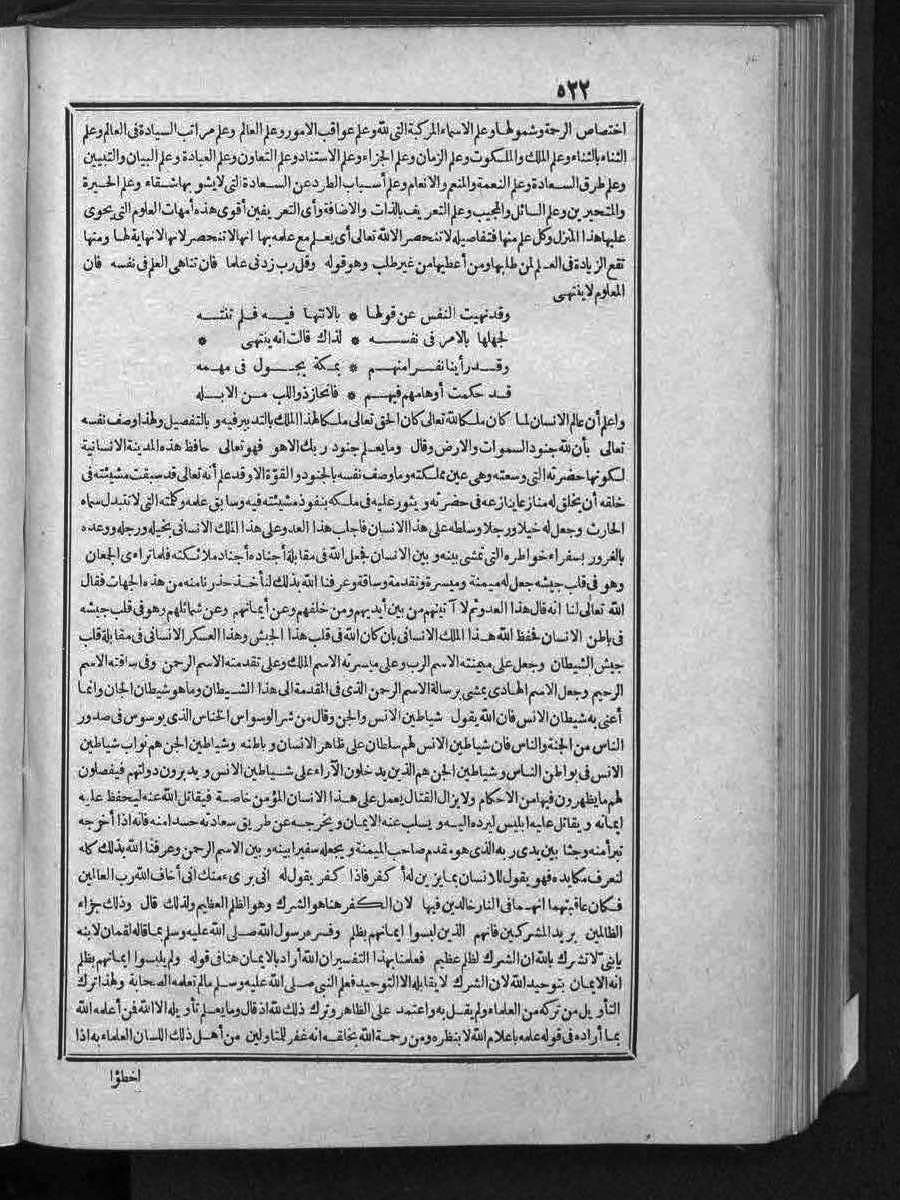 ٥٢٢
اختصاص الرحمة وشمولها وعلم الاسماء المركبة التى لله وعلم عواقب الامور وعلم العالم وعلم مراتب السيادة فى العالم وعلم
الثناء بالثناء وعلم الملك والملكوت وعلم الزمان وعلم الجزاء وعلم الاستناد وعلم التعاون وعلم العبادة وعلم البيان والتبيين
وعلم طرق السعادة وعلم النعمة والمنعم والانعام وعلم أسباب الطرد عن السعادة التى لا يشو بها شقاء وعلم الحيرة
والمتحيرين وعلم السائل والمجيب وعلم التعريف بالذات والاضافة وأى التعريفين أقوى هذه أمهات العلوم التى يحوى
عليها هذا المنزل وكل علم منها فتفاصيله لا تنحصر الا لله تعالى أى يعلم مع علمه بها انها لا تنحصر لانها لا نهاية لها ومنها
تقع الزيادة فى العلم لمن طلبها ومن أعطيها من غير طلب وهو قوله وقل رب زدنى علما فان تناهى العلم فى نفسه فان
المعلوم لا ينتهى
وقد نهيت النفس عن قولها * بالانتها فيه فلم تنته
لجهلها بالامر فى نفسه * لذاك قالت انه ينتهى *
وقد رأينا نفرا منهم * بمكة يجول فى مهمه
قد حكمت أوهامهم فيهم * فانحاز ذو اللب من الابله
واعلم أن عالم الانسان لما كان ملكا لله تعالى كان الحق تعالى ملكا لهذا الملك بالتدبير فيه و بالتفصيل ولهذا وصف نفسه
تعالى بأن لله جنود السموات والارض وقال وما يعلم جنود ربك الا هو فهو تعالى حافظ هذه المدينة الانسانية
لكونها حضرته التى وسعته وهى عين مملكته وما وصف نفسه بالجنود والقوة الا وقد علم أنه تعالى قد سبقت مشيئته فى
خلقه أن يخلق له منازعا ينازعه فى حضرته و يثور عليه فى ملكه بنفوذ مشيئته فيه وسابق علمه وكلمته التى لا تتبدل سماه
الحارث وجعل له خيلا ورجلا وسلطه على هذا الانسان فأجلب هذا العدو على هذا الملك الانسانى بخيله ورجله ووعده
بالغرور بسفراء خواطره التى تمشى بينه و بين الانسان فجعل الله فى مقابلة أجناده أجناد ملائكته فلما تراءى الجمعان
وهو فى قلب جيشه جعل له ميمنة وميسرة وتقدمة وساقة وعرفنا الله بذلك لنأخذ حذرنا منه من هذه الجهات فقال
الله تعالى لنا انه قال هذا العدو ثم لآتينهم من بين أيديهم ومن خلفهم وعن أيمانهم وعن شمائلهم وهو فى قلب جيشه
فى باطن الانسان فحفظ الله هذا الملك الانسانى بان كان الله فى قلب هذا الجيش وهذا العسكر الانسانى فى مقابلة قلب
جيش الشيطان وجعل على ميمنته الاسم الرب وعلى ميسرته الاسم الملك وعلى تقدمته الاسم الرحمن وفى ساقته الاسم
الرحيم وجعل الاسم الهادى يمشى برسالة الاسم الرحمن الذى فى المقدمة الى هذا الشيطان وما هو شيطان الجان وانما
أعنى به شيطان الانس فان الله يقول شياطين الانس والجن وقال من شر الوسواس الخناس الذى يوسوس فى صدور
الناس من الجنة والناس فان شياطين الانس لهم سلطان على ظاهر الانسان وباطنه وشياطين الجن هم نواب شياطين
الانس فى بواطن الناس وشياطين الجن هم الذين يدخلون الآراء على شياطين الانس و يدبرون دولتهم فيفصلون
لهم ما يظهرون فيها من الاحكام ولا يزال القتال يعمل على هذا الانسان المؤمن خاصة فيقاتل الله عنه ليحفظ عليه
ايمانه و يقاتل عليه ابليس ليرده اليه و يسلب عنه الايمان ويخرجه عن طريق سعادته حسدا منه فانه اذا أخرجه
تبرأ منه وجثا بين يدى ربه الذى هو مقدم صاحب الميمنة و يجعله سفيرا بينه و بين الاسم الرحمن وعرفنا الله بذلك كله
لنعرف مكايده فهو يقول للانسان بما يزين له أ كفر فاذا كفر يقول له انى برىء منك انى أخاف الله رب العالمين
فكان عاقبتهما انهما فى النار خالدين فيها لان الكفر هنا هو الشرك وهو الظلم العظيم ولذلك قال وذلك جزاء
الظالمين يريد المشركين فانهم الذين لبسوا ايمانهم بظلم وفسره رسول الله صلى الله عليه وسلم بما قاله لقمان لابنه
يا بنى لا تشرك بالله ان الشرك لظلم عظيم فعلمنا بهذا التفسير ان الله أراد بالايمان هنا فى قوله ولم يلبسوا ايمانهم بظلم
انه الايمان بتوحيد الله لان الشرك لا يقابله الا التوحيد فعلم النبى صلى الله عليه وسلم ما لم تعلمه الصحابة ولهذا ترك
التأويل من تركه من العلماء ولم يقل به واعتمد على الظاهر وترك ذلك لله اذ قال وما يعلم تأويله الا الله فمن أعلمه الله
بما أراده فى قوله علمه باعلام الله لا بنظره ومن رحمة الله بخلقه انه غفر للمتأولين من أهل ذلك اللسان العلماء به اذا
اخطؤا